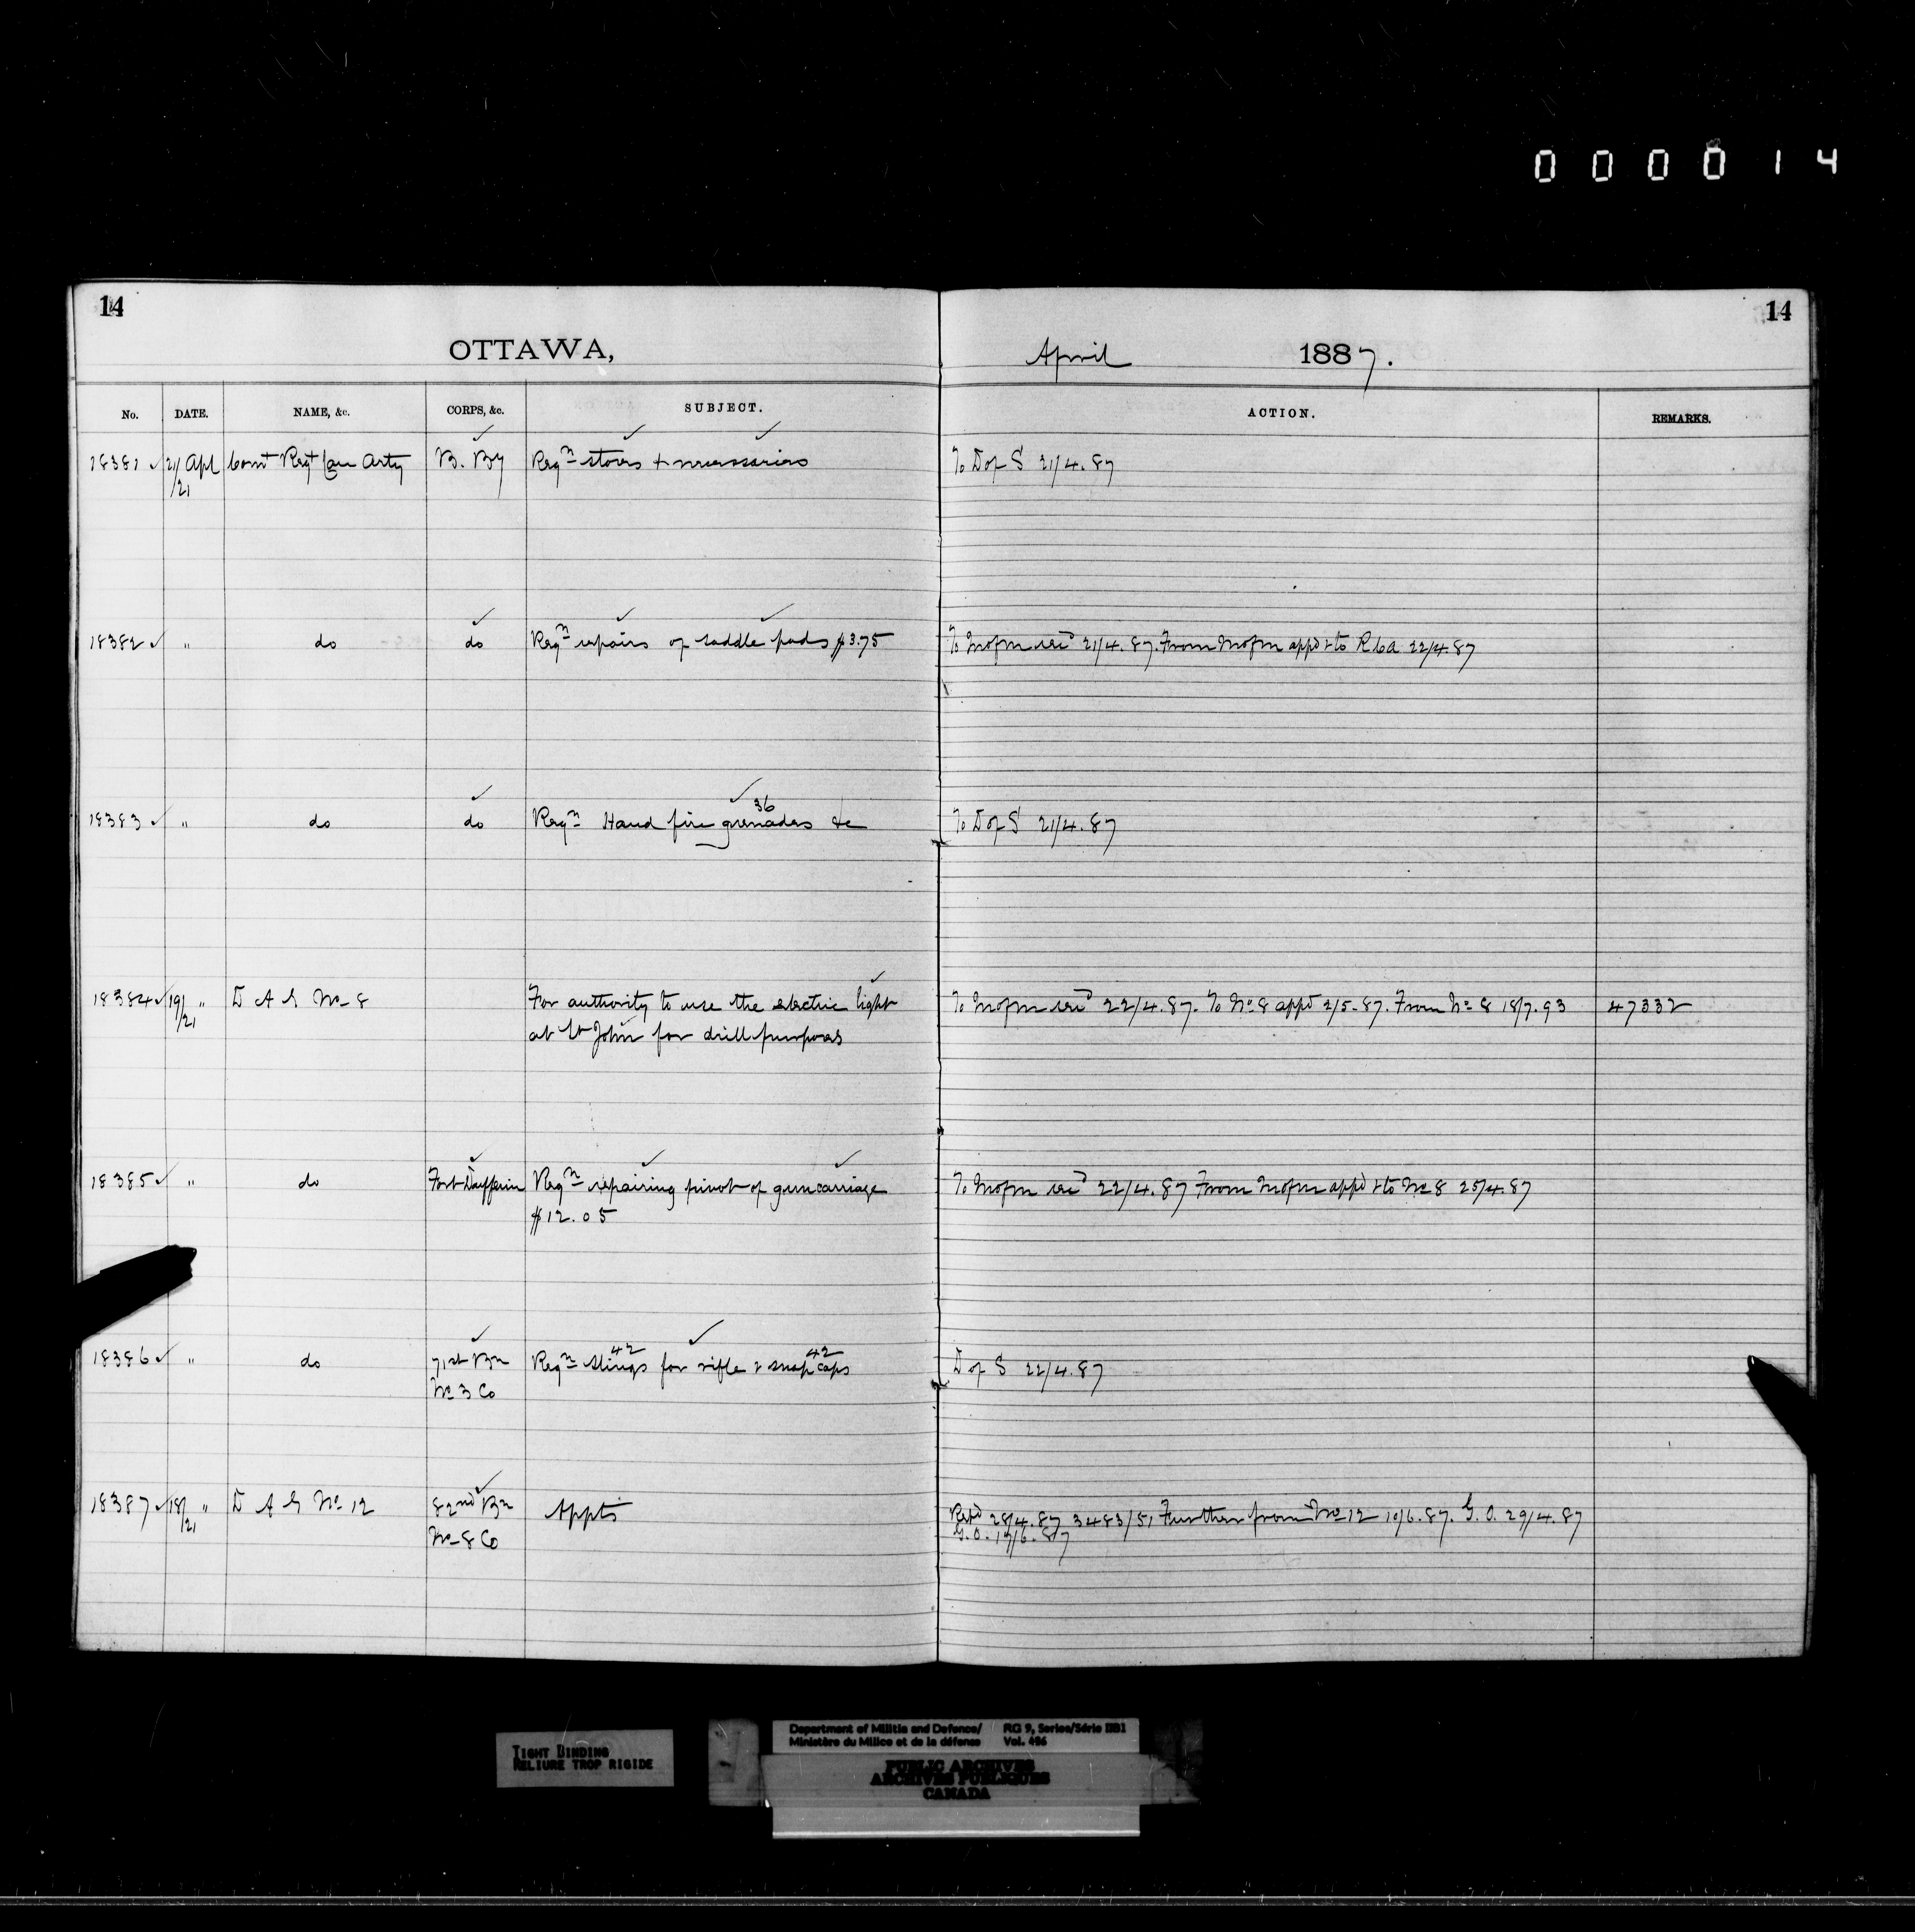 000014
14
14
OTTAWA,
April 1887.
No. DATE. NAME, &c. CORPS, &c. SUBJECT. ACTION. REMARKS.
18381 21/21 Apl Comt Regt Can Arty B. By Reqn stores + necessaries To D of S 21/4.87
18382 " do do Reqn repairs of saddle pads $3.75 To M of M 21/4.87. From M of M appd & to RCA 22/4.87
36
18383 " do do Reqn Hand fire grenades &c To D of S 21/4.87
18384 19/21 " D A G No 8 For authority to use the electric light To M of M 22/4.87. To No 8 appd 2/5.87. From No 8 18/7.93 47332
at St John for drill purposes
18385 " do Fort Dufferin Reqn repairing pivot of gun carriage To M of M 22/4.87 From M of M appd & to No 8 25/4.87
$12.05
42 42
18386 " do 71st Bn Reqn slings for rifle & snap caps D of S 22/4.87
No 3 Co
18387 18/21 " D A G No 12 82nd Bn Appts 28/4.87 3483/51 Further from No 12 10/6.87. G.O. 29/4.87
No 8 Co G.O. 17/6.87
TIGHT BINDING
RELIURE TROP RIGIDE
Department of Militia and Defence/ RG 9, Series/Série IIB1
Ministère du Milice et de la défense Vol. 486
PUBLIC ARCHIVES
ARCHIVES PUBLIQUES
CANADA